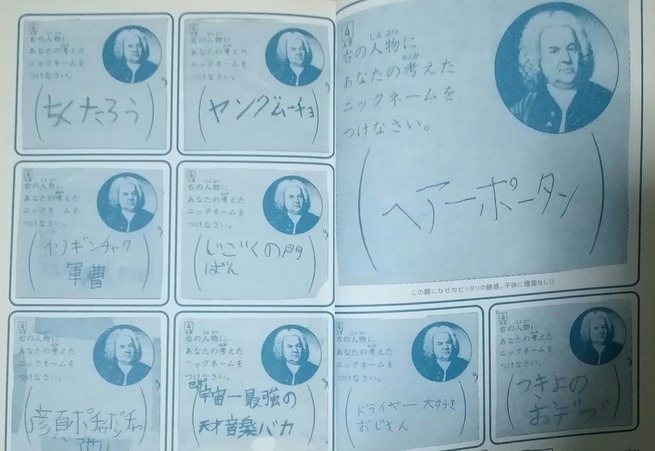 4
右の人物に
あなたの考えた
ニックネームを
つけなさい。
ちくたろう
4
右の人物に
あなたの考えた
ニックネームを
つけなさい。
ヤングムーチョ
4
右の人物に
あなたの考えた
ニックネームを
つけなさい。
ヘアーポータン
この顔になぜかピッタリの語感。子供に理屈なし!!
4
右の人物に
あなたの考えた
ニックネームを
つけなさい。
イソギンチャク
軍曹
4
右の人物に
あなたの考えた
ニックネームを
つけなさい。
じごくの門
ばん
4
右の人物に
あなたの考えた
ニックネームを
つけなさい。
ポチャポチャ
4
右の人物に
あなたの考えた
ニックネームを
つけなさい。
宇宙一最強の
天才音楽バカ
4
右の人物に
あなたの考えた
ニックネームを
つけなさい。
ドライヤー大好き
おじさん
4
右の人物に
あなたの考えた
ニックネームを
つけなさい。
つきよの
おデブ